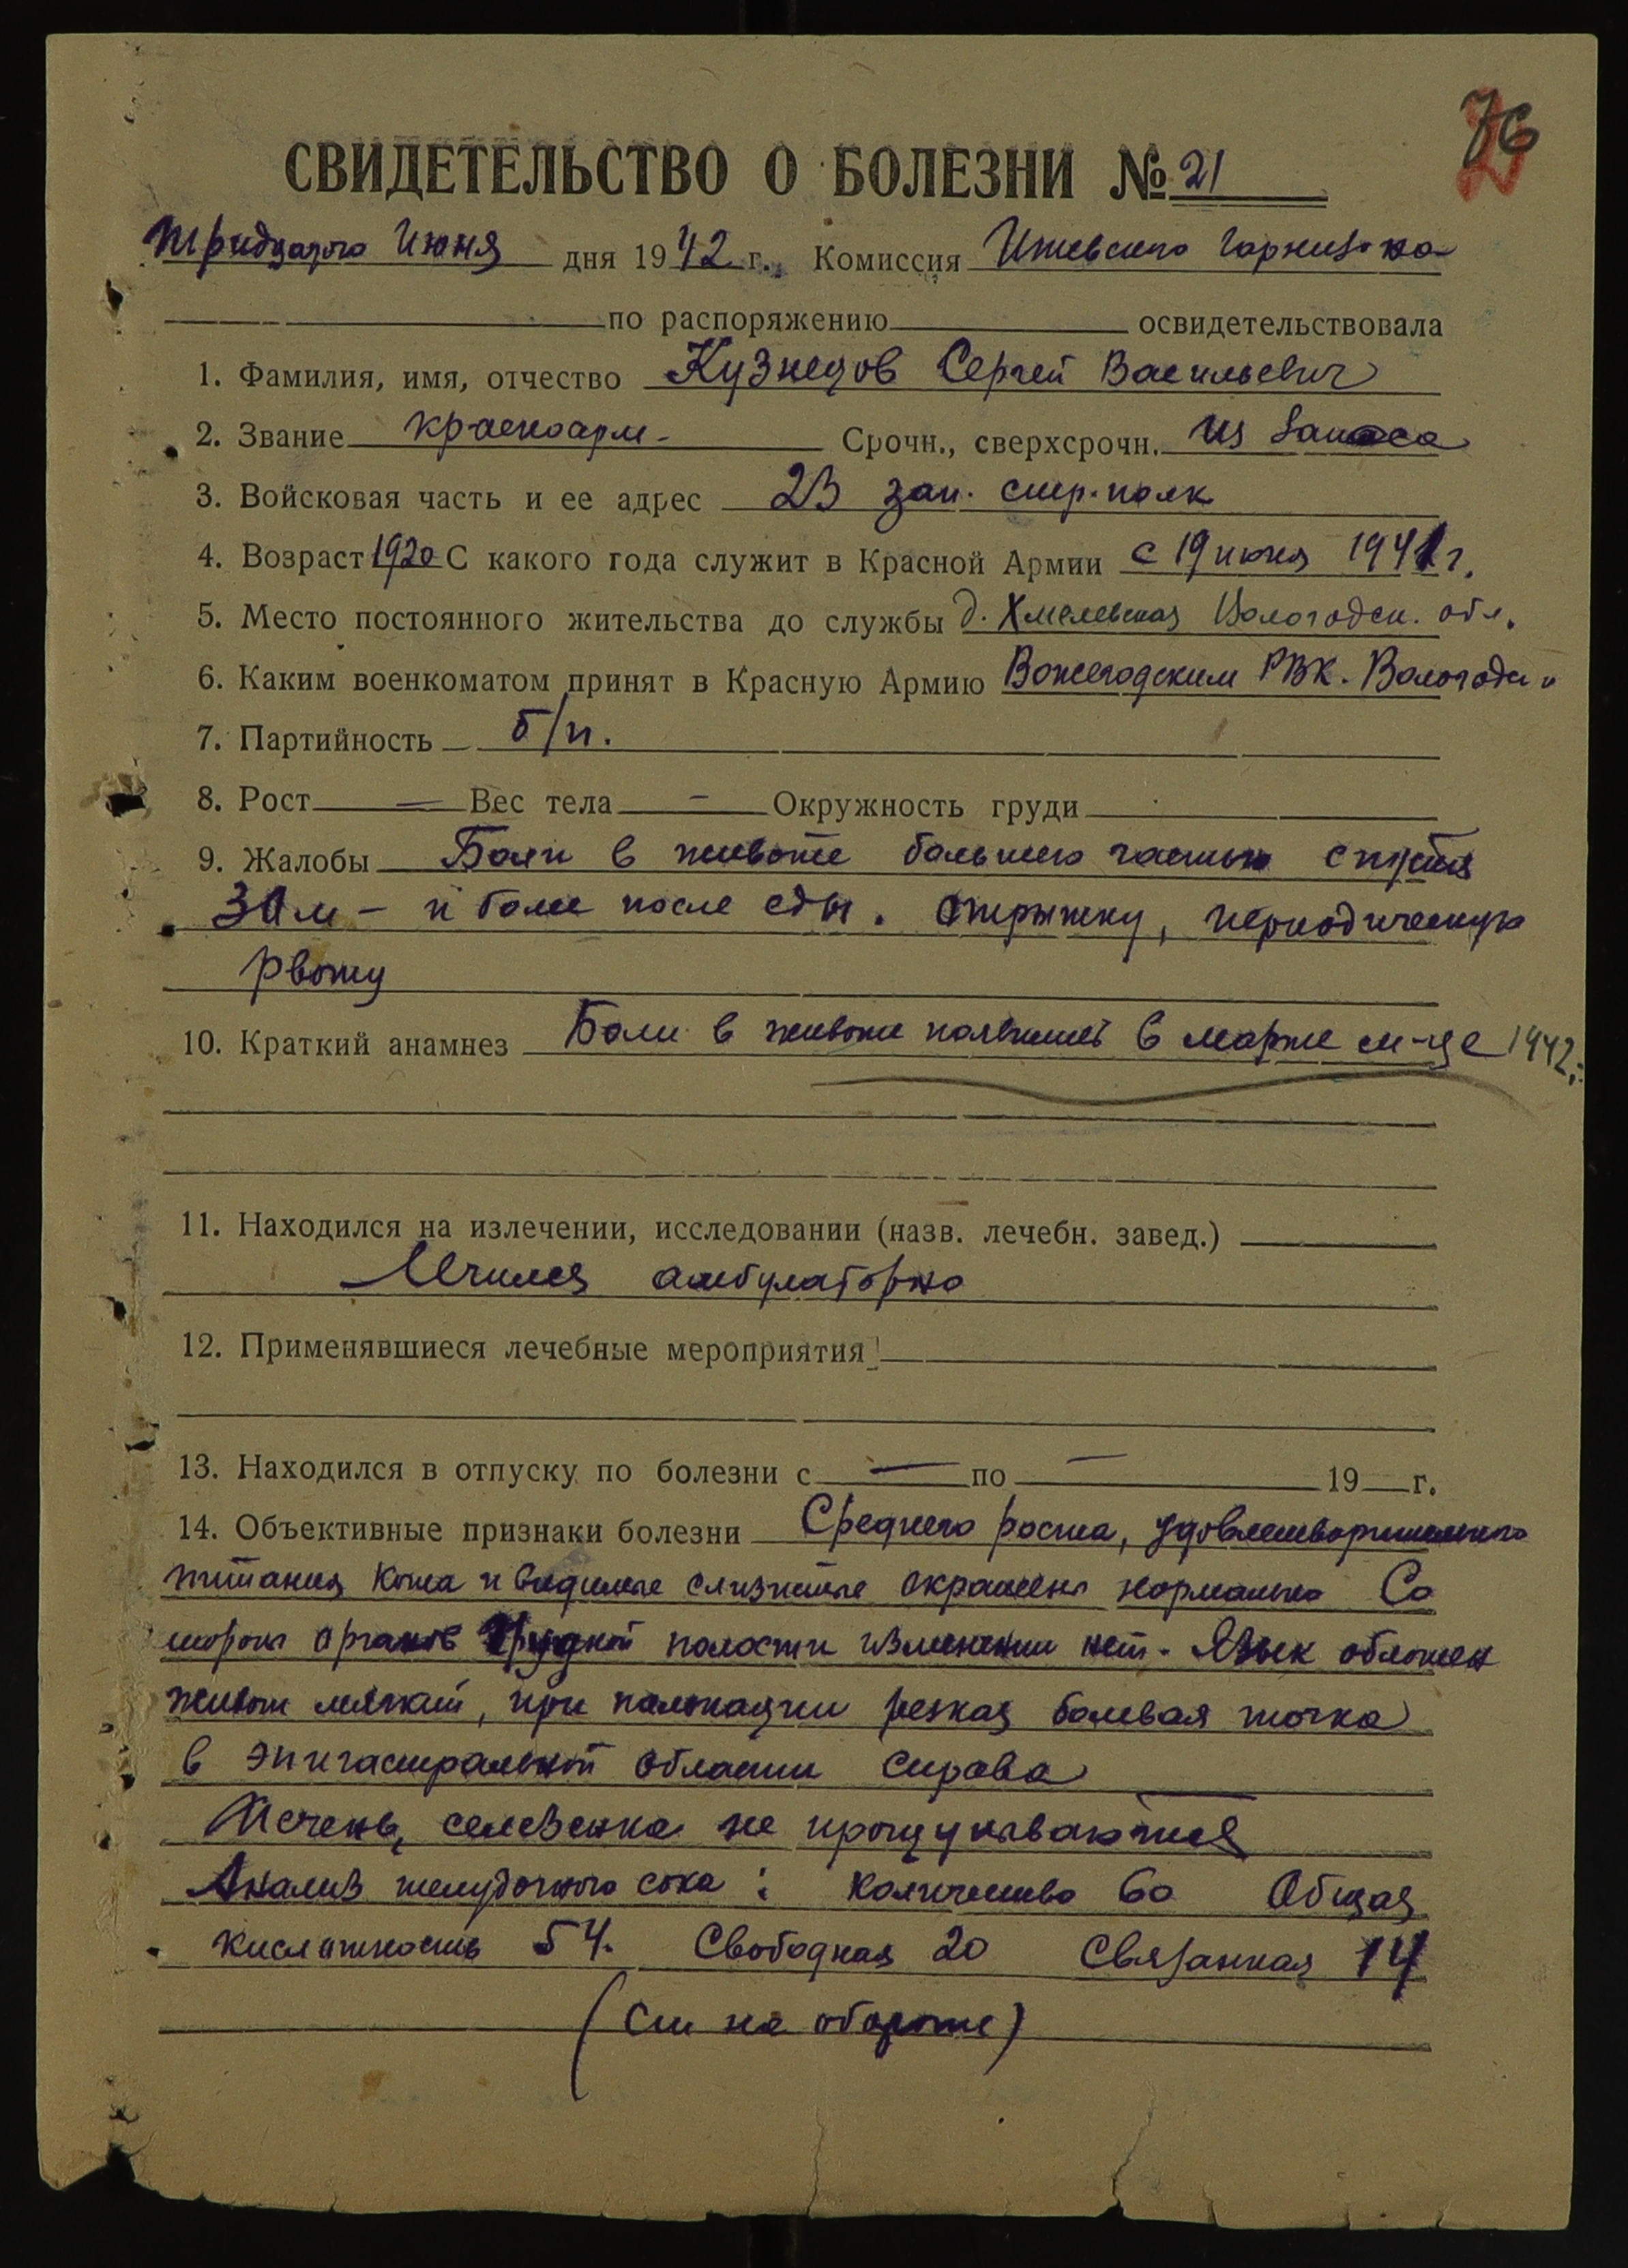 76
СВИДЕТЕЛЬСТВО О БОЛЕЗНИ № 21
тридцатого Июня дня 1942 г. Комиссия Ижевского гарнизона
по распоряжению освидетельствовала
1. Фамилия, имя, отчество Кузнецов Сергей Васильевич
2. Звание красноарм- Срочн., сверхсрочн. из запаса
3. Войсковая часть и ее адрес 23 зап. стр. полк
4. Возраст 1920 С какого года служит в Красной Армии с 19 июня 1941 г.
5. Место постоянного жительства до службы д. Хмелевская Вологодск. обл.
6. Каким военкоматом принят в Красную Армию Вожегодским РВК. Вологодск
7. Партийность б/п.
8. Рост — Вес тела — Окружность груди
9. Жалобы Боли в животе большею частью спустя
30 м - и более после еды. Отрыжку, периодическую
рвоту
10. Краткий анамнез Боли в животе появились в марте м-це 1942
11. Находился на излечении, исследовании (назв. лечебн. завед.)
Лечился амбулаторно
12. Применявшиеся лечебные мероприятия
13. Находился в отпуску по болезни с — по — 19 г.
14. Объективные признаки болезни Среднего роста, удовлетворительного
питания Кожа и видимые слизистые окрашены нормально Со
стороны органов грудной полости изменений нет. Язык обложен
живот мягкий, при пальпации резкая болевая точка
в эпигастральной области справа
Печень, селезенка не прощупываются
Анализ желудочного сока: количество 60 Общая
кислотность 54. Свободная 20 Связанная 14
(См на обороте)